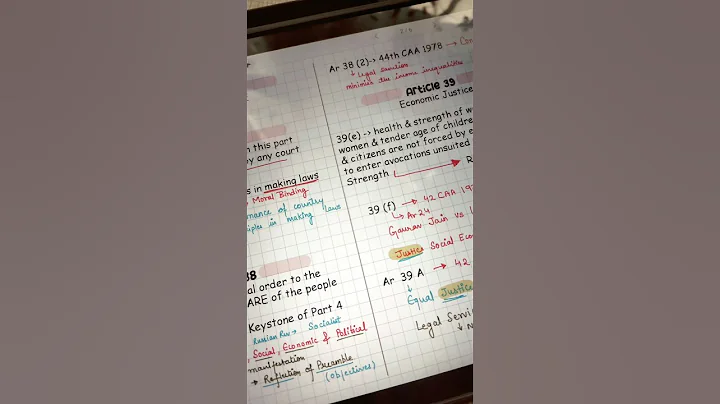 n this part
y any court
s in making laws
Moral Binding
nance of country
iples in making laws
38
al order to the
ARE of the people
Keystone of Part 4
Russian Rev → Socialist
Social, Economic & Political
manifestation
→ Reflection of Preamble
(objectives)
Ar 38 (2)-> 44th CAA 1978 → Con
↓ Legal
minimise the income inequalities
Article 39
Economic Justice
39(e) -> health & strength of w
women & tender age of children
& citizens are not forced by e
to enter avocations unsuited
Strength
R
39 (f) → 42 CAA 197
↳ Ar 24
Gaurav Jain vs
Justice Social Eco
Ar 39 A → 42
↓
Equal Justice
Legal Servi
↓ N